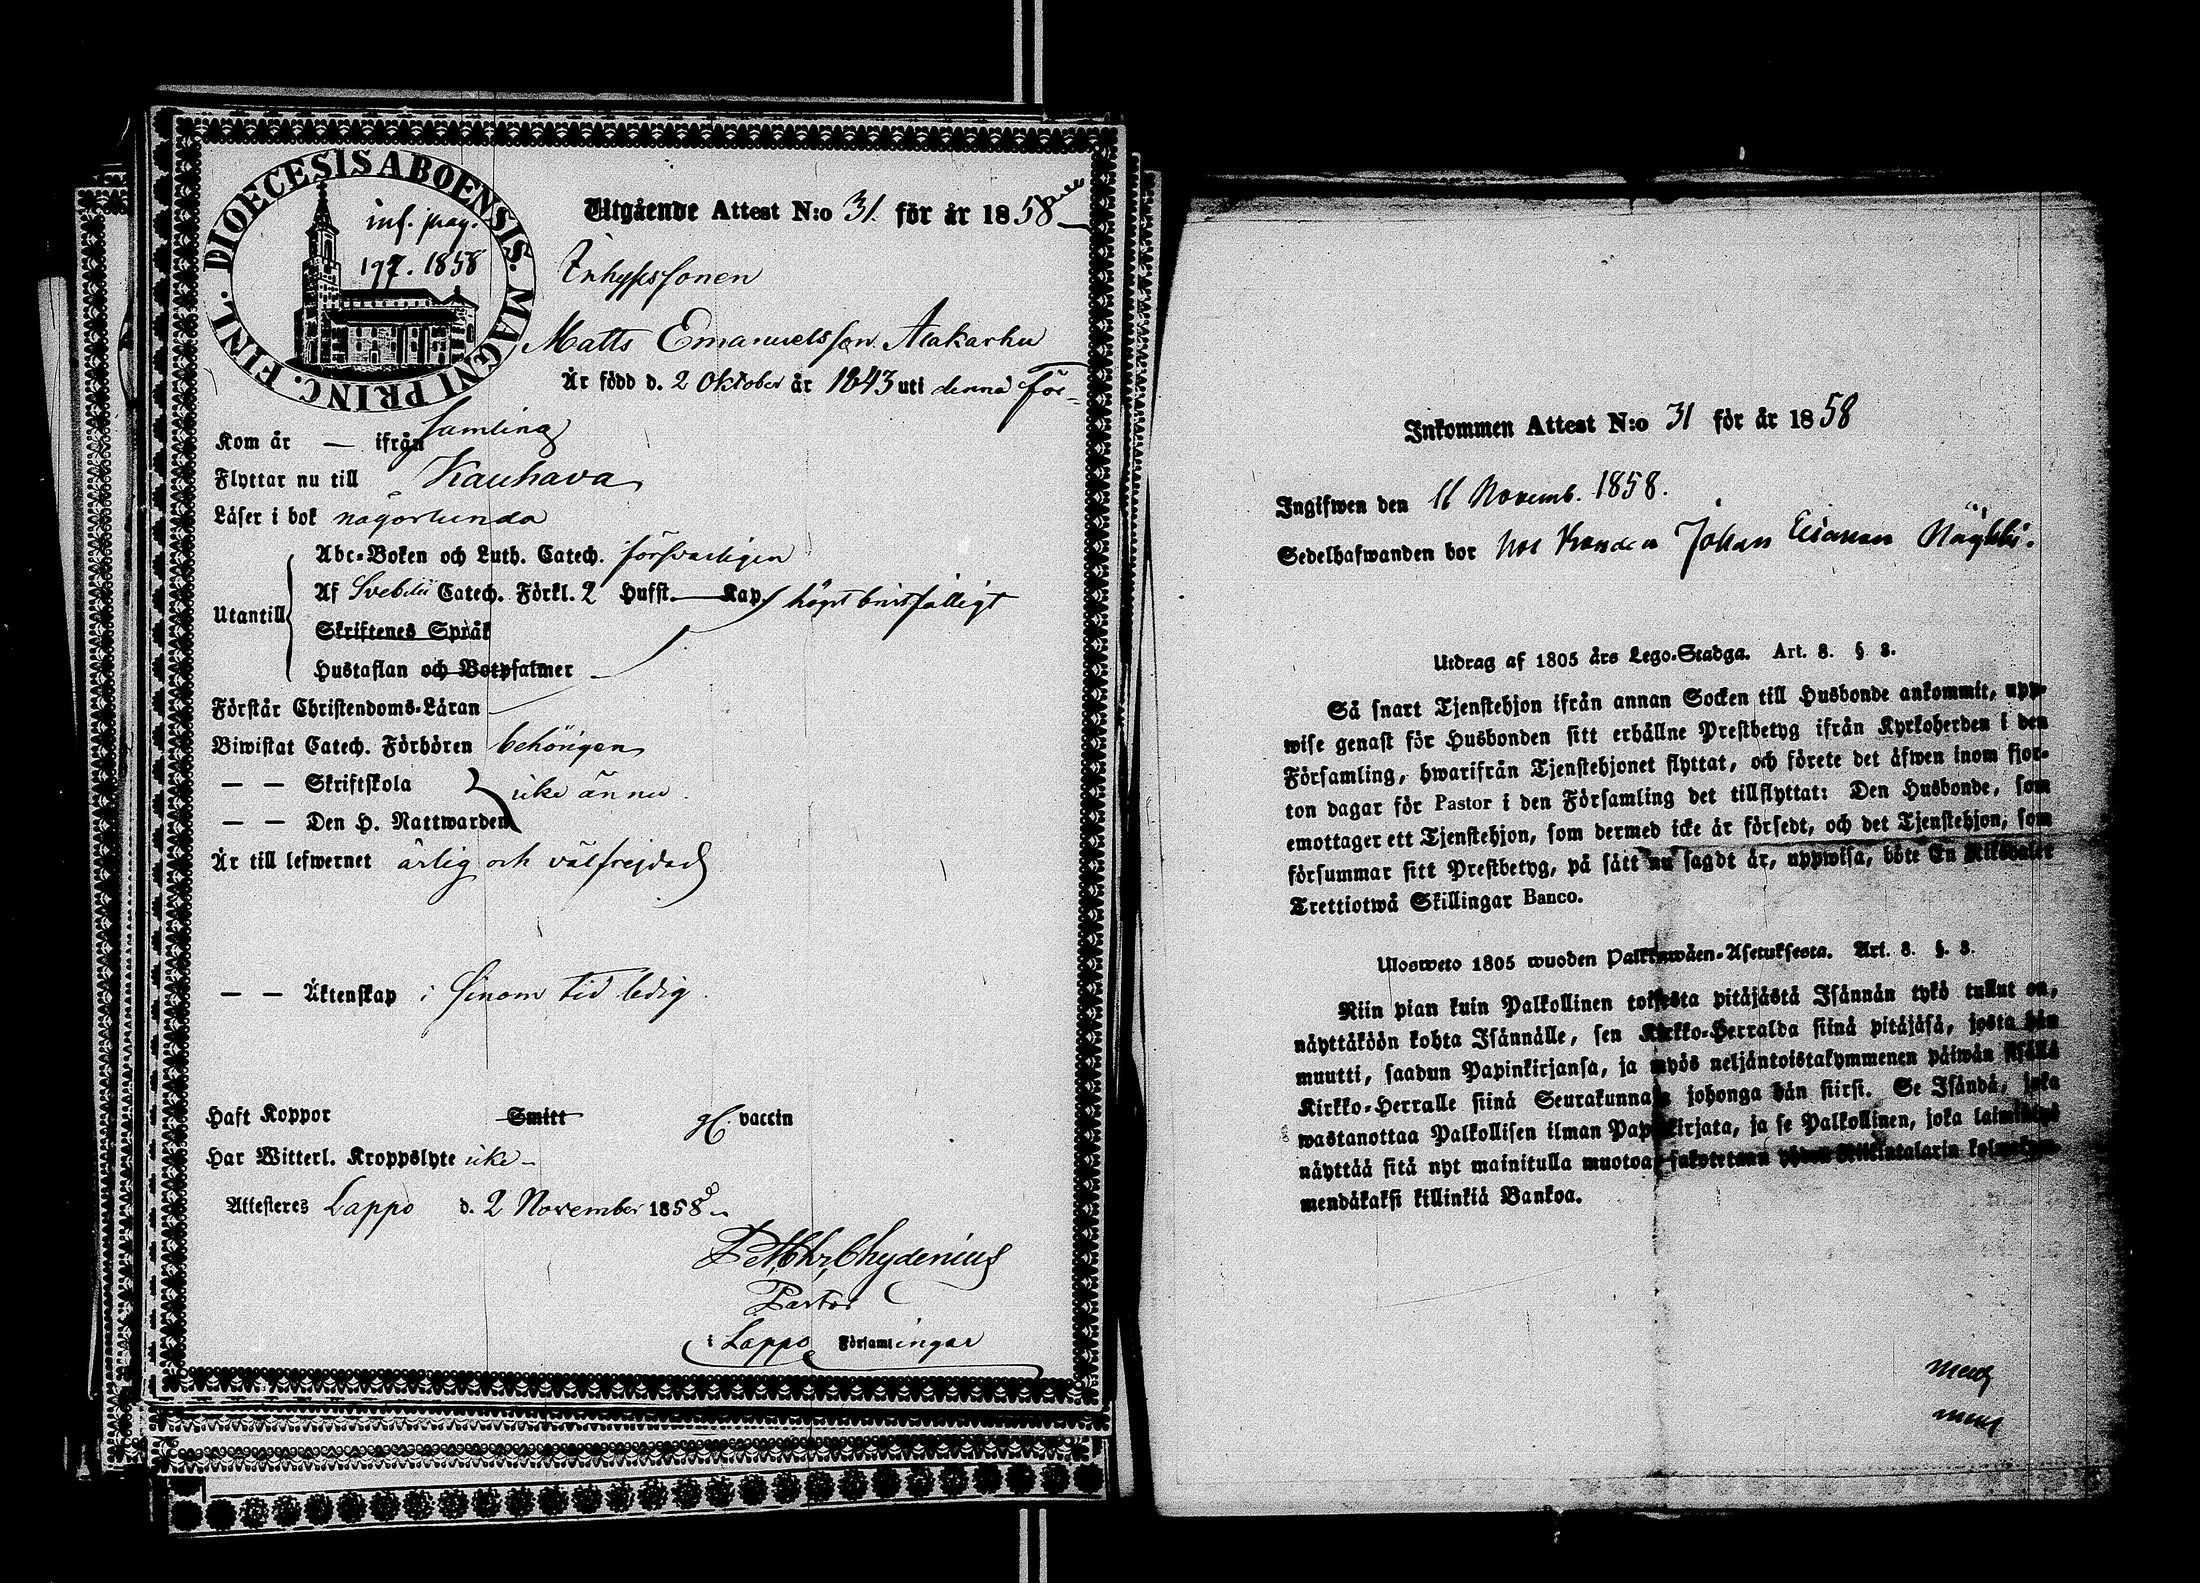 DIOECESIS ABOENSIS. MAGNI PRINC. FINL.
inf. pag.
197. 1858
Utgående Attest N:o 31. för år 1858
Inhyssonen
Matts Emanuelsson Alakarhu
Är född d. 2 Oktober år 1843 uti denna För-
samling
Kom år — ifrån
Flyttar nu till Kauhava
Läser i bok någorlunda
Utantill
Abc-Boken och Luth. Catech. försvarligen
Af Svebilii Catech. Förkl. 2 Hufst. — Kap. högst bristfälligt
Skriftenes Språk
Hustaflan och Botpsalmer
Förstår Christendoms-Läran
Biwistat Catech. Förhören behörigen
— — Skriftskola
icke ännu.
— — Den H. Nattwarden
Är till lefwernet ärlig och välfrejdad
— — Äktenskap i sinom tid ledig.
Haft Koppor Smitt vaccin
Har Witterl. Kroppslyte icke
Attesteres Lappo d. 2 November 1858
Pet. Chr. Chydenius
Pastor
i Lappo Församlingar
Inkommen Attest N:o 31 för år 1858
Ingifwen den 11 Novemb. 1858.
Sedelhafwanden bor hos Johan
Utdrag af 1805 års Lego-Stadga. Art. 8. § 8.
Så snart Tjenstehjon ifrån annan Socken till Husbonde ankommit, upp-
wise genast för Husbonden sitt erhållne Prestbetyg ifrån Kyrkoherden i den
Församling, hwarifrån Tjenstehjonet flyttat, och förete det äfwen inom fjor-
ton dagar för Pastor i den Församling det tillflyttat: Den Husbonde, som
emottager ett Tjenstehjon, som dermed icke är försedt, och det Tjenstehjon, som
försummar sitt Prestbetyg, på sätt nu sagdt är, uppwisa, böte En Riksdaler
Trettiotwå Skillingar Banco.
Ulosweto 1805 wuoden Palkkawäen-Asetuksesta. Art. 8. §. 8.
Niin pian kuin Palkollinen toisesta pitäjästä Isännän tykö tullut on,
näyttäköön kohta Isännälle, sen Kirkko-Herralda siinä pitäjäsä, josta hän
muutti, saadun Papinkirjansa, ja myös neljäntoistakymmenen päiwän sisällä
Kirkko-Herralle siinä Seurakunnasa johonga hän siirsi. Se Isändä, joka
wastanottaa Palkollisen ilman Papinkirjata, ja se Palkollinen, joka laiminlyö
näyttää sitä nyt mainitulla muotoa, sakotetaan yhden Riikintalarin kolmekym-
mendäkaksi killinkiä Bankoa.